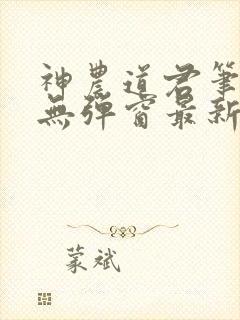 神農道君筆
無彈窗最新
蒙斌